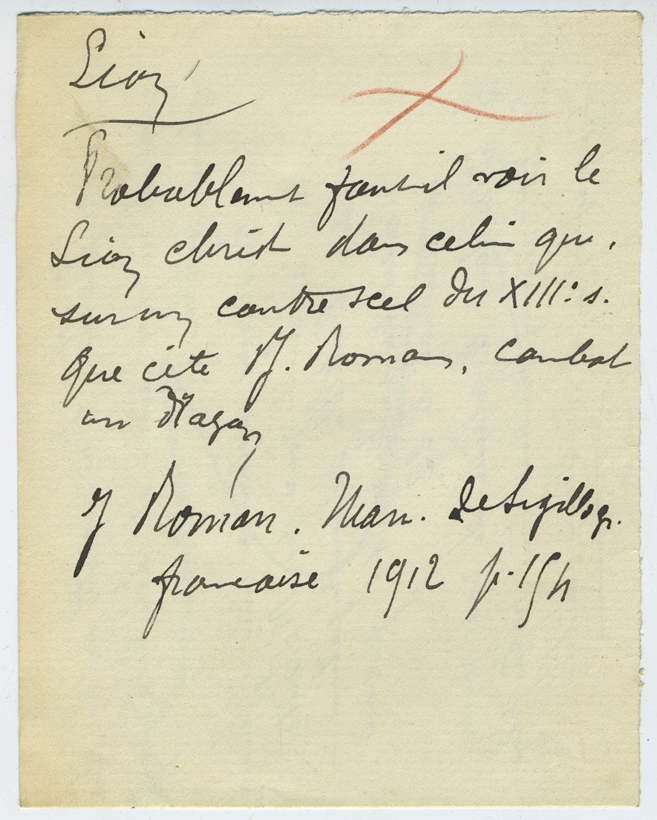 Lion
Probablement faut-il voir le
Lion christ dans celui que,
sur un contre scel du XIII: s.
que cite J. Roman, combat
un dragon
J Roman. Man. de Sigillogr.
française 1912 p. 154